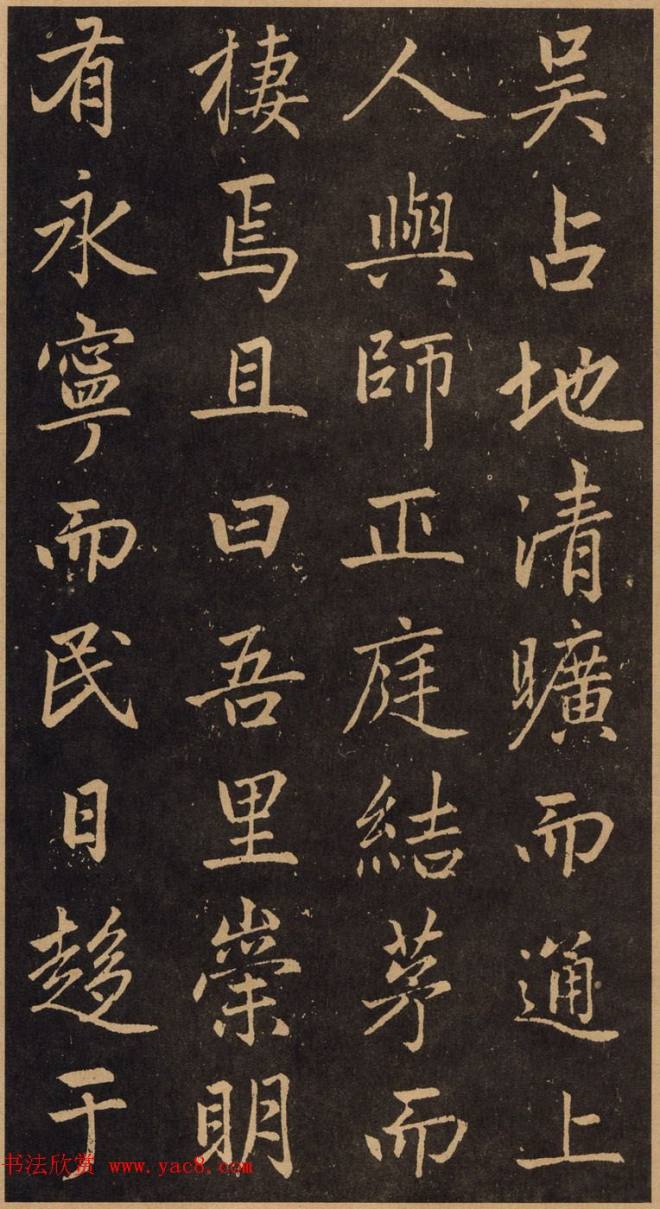 吴占地清曠而通上
人與師正庭結茅而
棲焉且曰吾里崇明
有永寧而民日趍于
书法欣赏 www.yac8.com